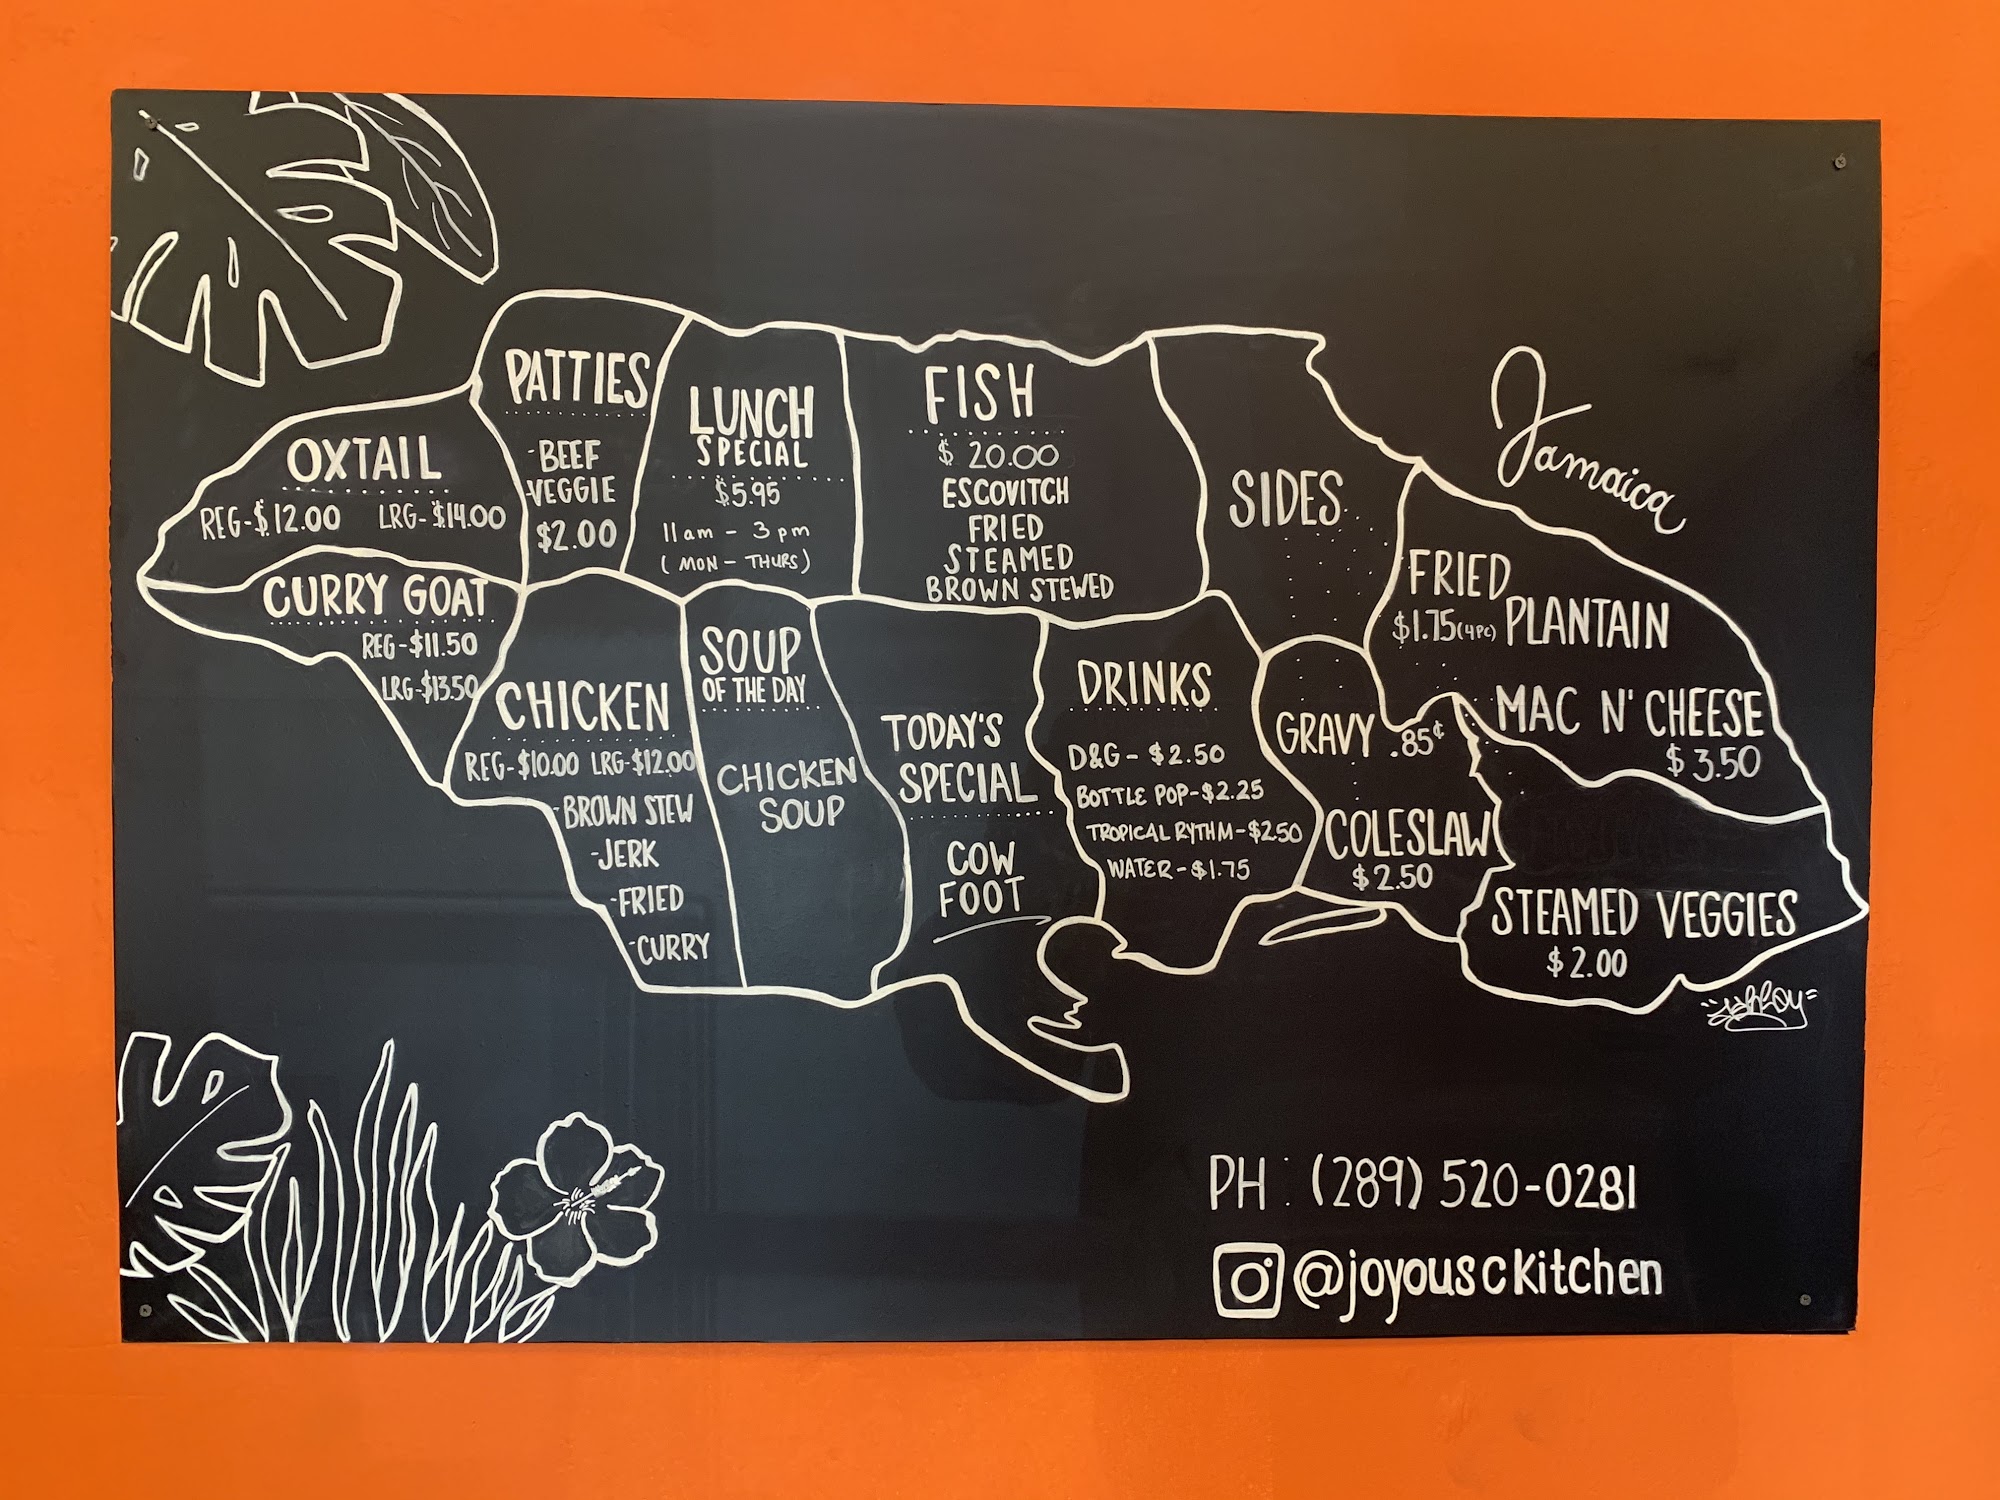 OXTAIL
REG-$12.00 LRG-$14.00
CURRY GOAT
REG-$11.50
LRG-$13.50
PATTIES
-BEEF
-VEGGIE
$2.00
LUNCH
SPECIAL
$5.95
11am - 3pm
(MON - THURS)
FISH
$ 20.00
ESCOVITCH
FRIED
STEAMED
BROWN STEWED
CHICKEN
REG-$10.00 LRG-$12.00
-BROWN STEW
-JERK
-FRIED
-CURRY
SOUP
OF THE DAY
CHICKEN
SOUP
TODAY'S
SPECIAL
COW
FOOT
DRINKS
D&G - $2.50
BOTTLE POP-$2.25
TROPICAL RYTHM-$2.50
WATER-$1.75
SIDES
GRAVY .85¢
COLESLAW
$2.50
FRIED
PLANTAIN
$1.75(4PC)
MAC N' CHEESE
$3.50
STEAMED VEGGIES
$2.00
Jamaica
PH: (289) 520-0281
@joyousckitchen